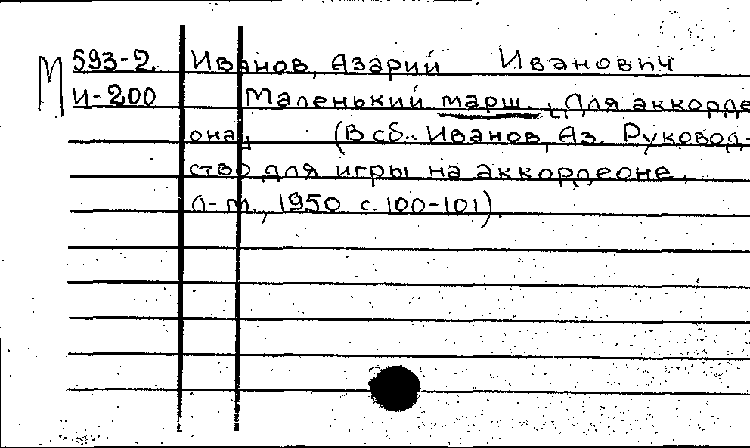 М 593-2 Иванов, Азарий Иванович
И-200 Маленький марш. [Для аккорде
она] (В сб.: Иванов, Аз. Руковод-
ство для игры на аккордеоне.
Л-М., 1950 с. 100-101).